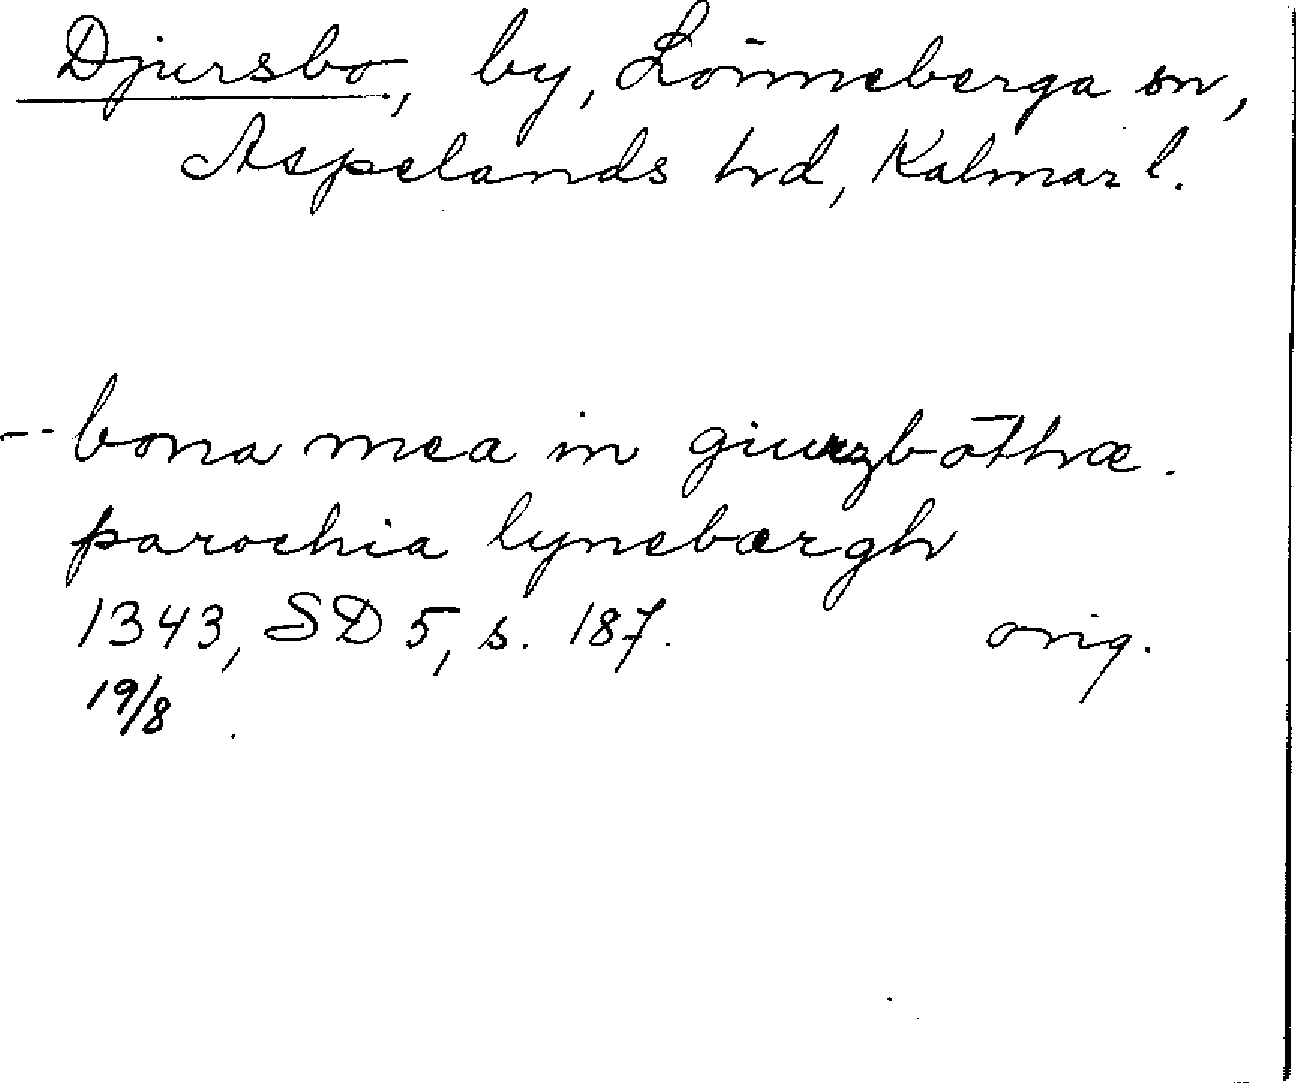 Djursbo, by, Lönneberga sn,
Aspelands hrd, Kalmar l.
-- bona mea in giurzbōthæ.
parochia lynebærgh
1343, SD 5, s. 187. orig.
19/8